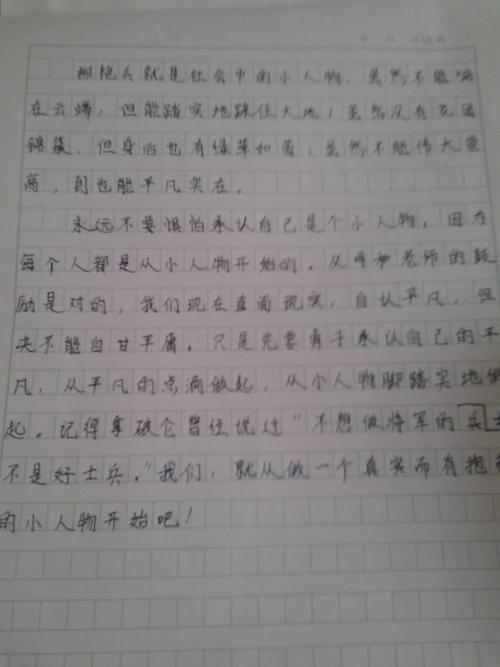 那抱兵就是社会中的小人物，虽然不能站
在云端，但能踏实地踩住大地；虽然没有花团
锦簇，但身后也有绿草如茵；虽然不能伟大崇
高，到也能平凡实在。
永远不要惧怕承认自己是个小人物，因为
每个人都是从小人物开始的。从呼和老师的鼓
励是对的，我们现在直面现实，自认平凡，但
决不能自甘平庸。只是先要勇于承认自己的平
凡，从平凡的点滴做起，从小人物脚踏实地做
起。记得拿破仑曾经说过“不想做将军的兵
不是好士兵。”我们，就从做一个真实而有抱
的小人物开始吧！